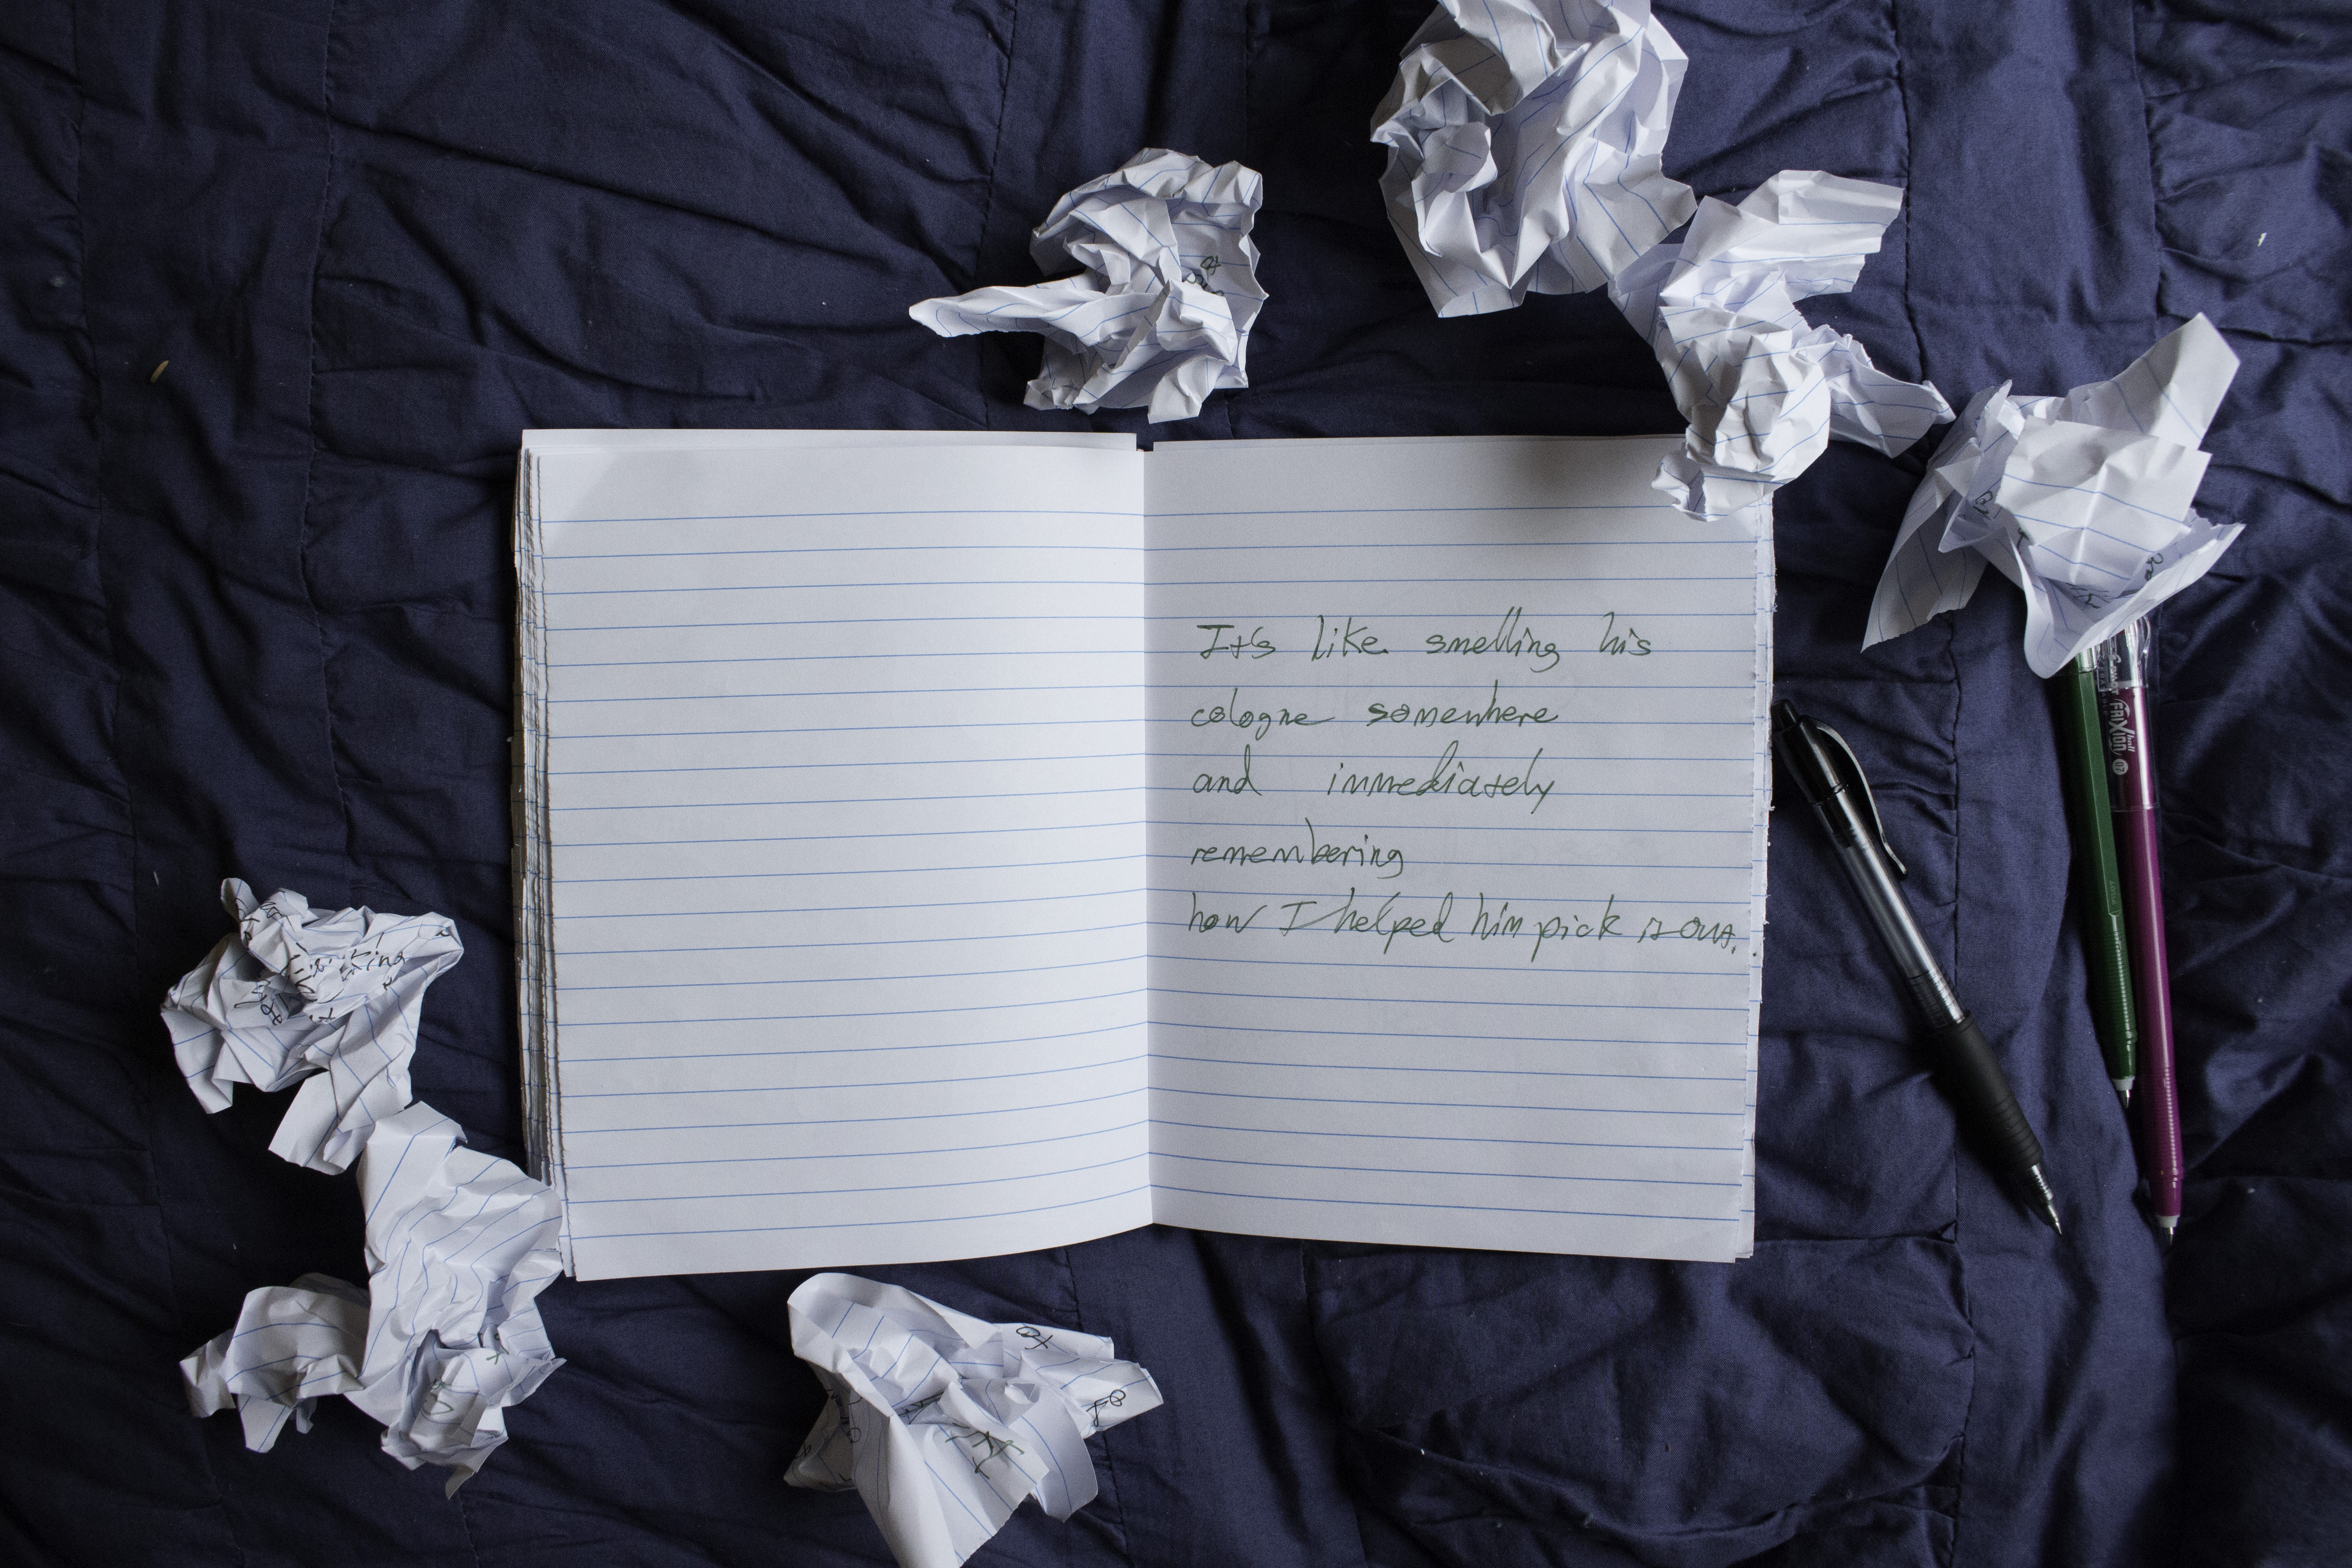 It's like smelling his
cologne somewhere
and immediately
remembering
how I helped him pick it out.
FRIXion ball
07